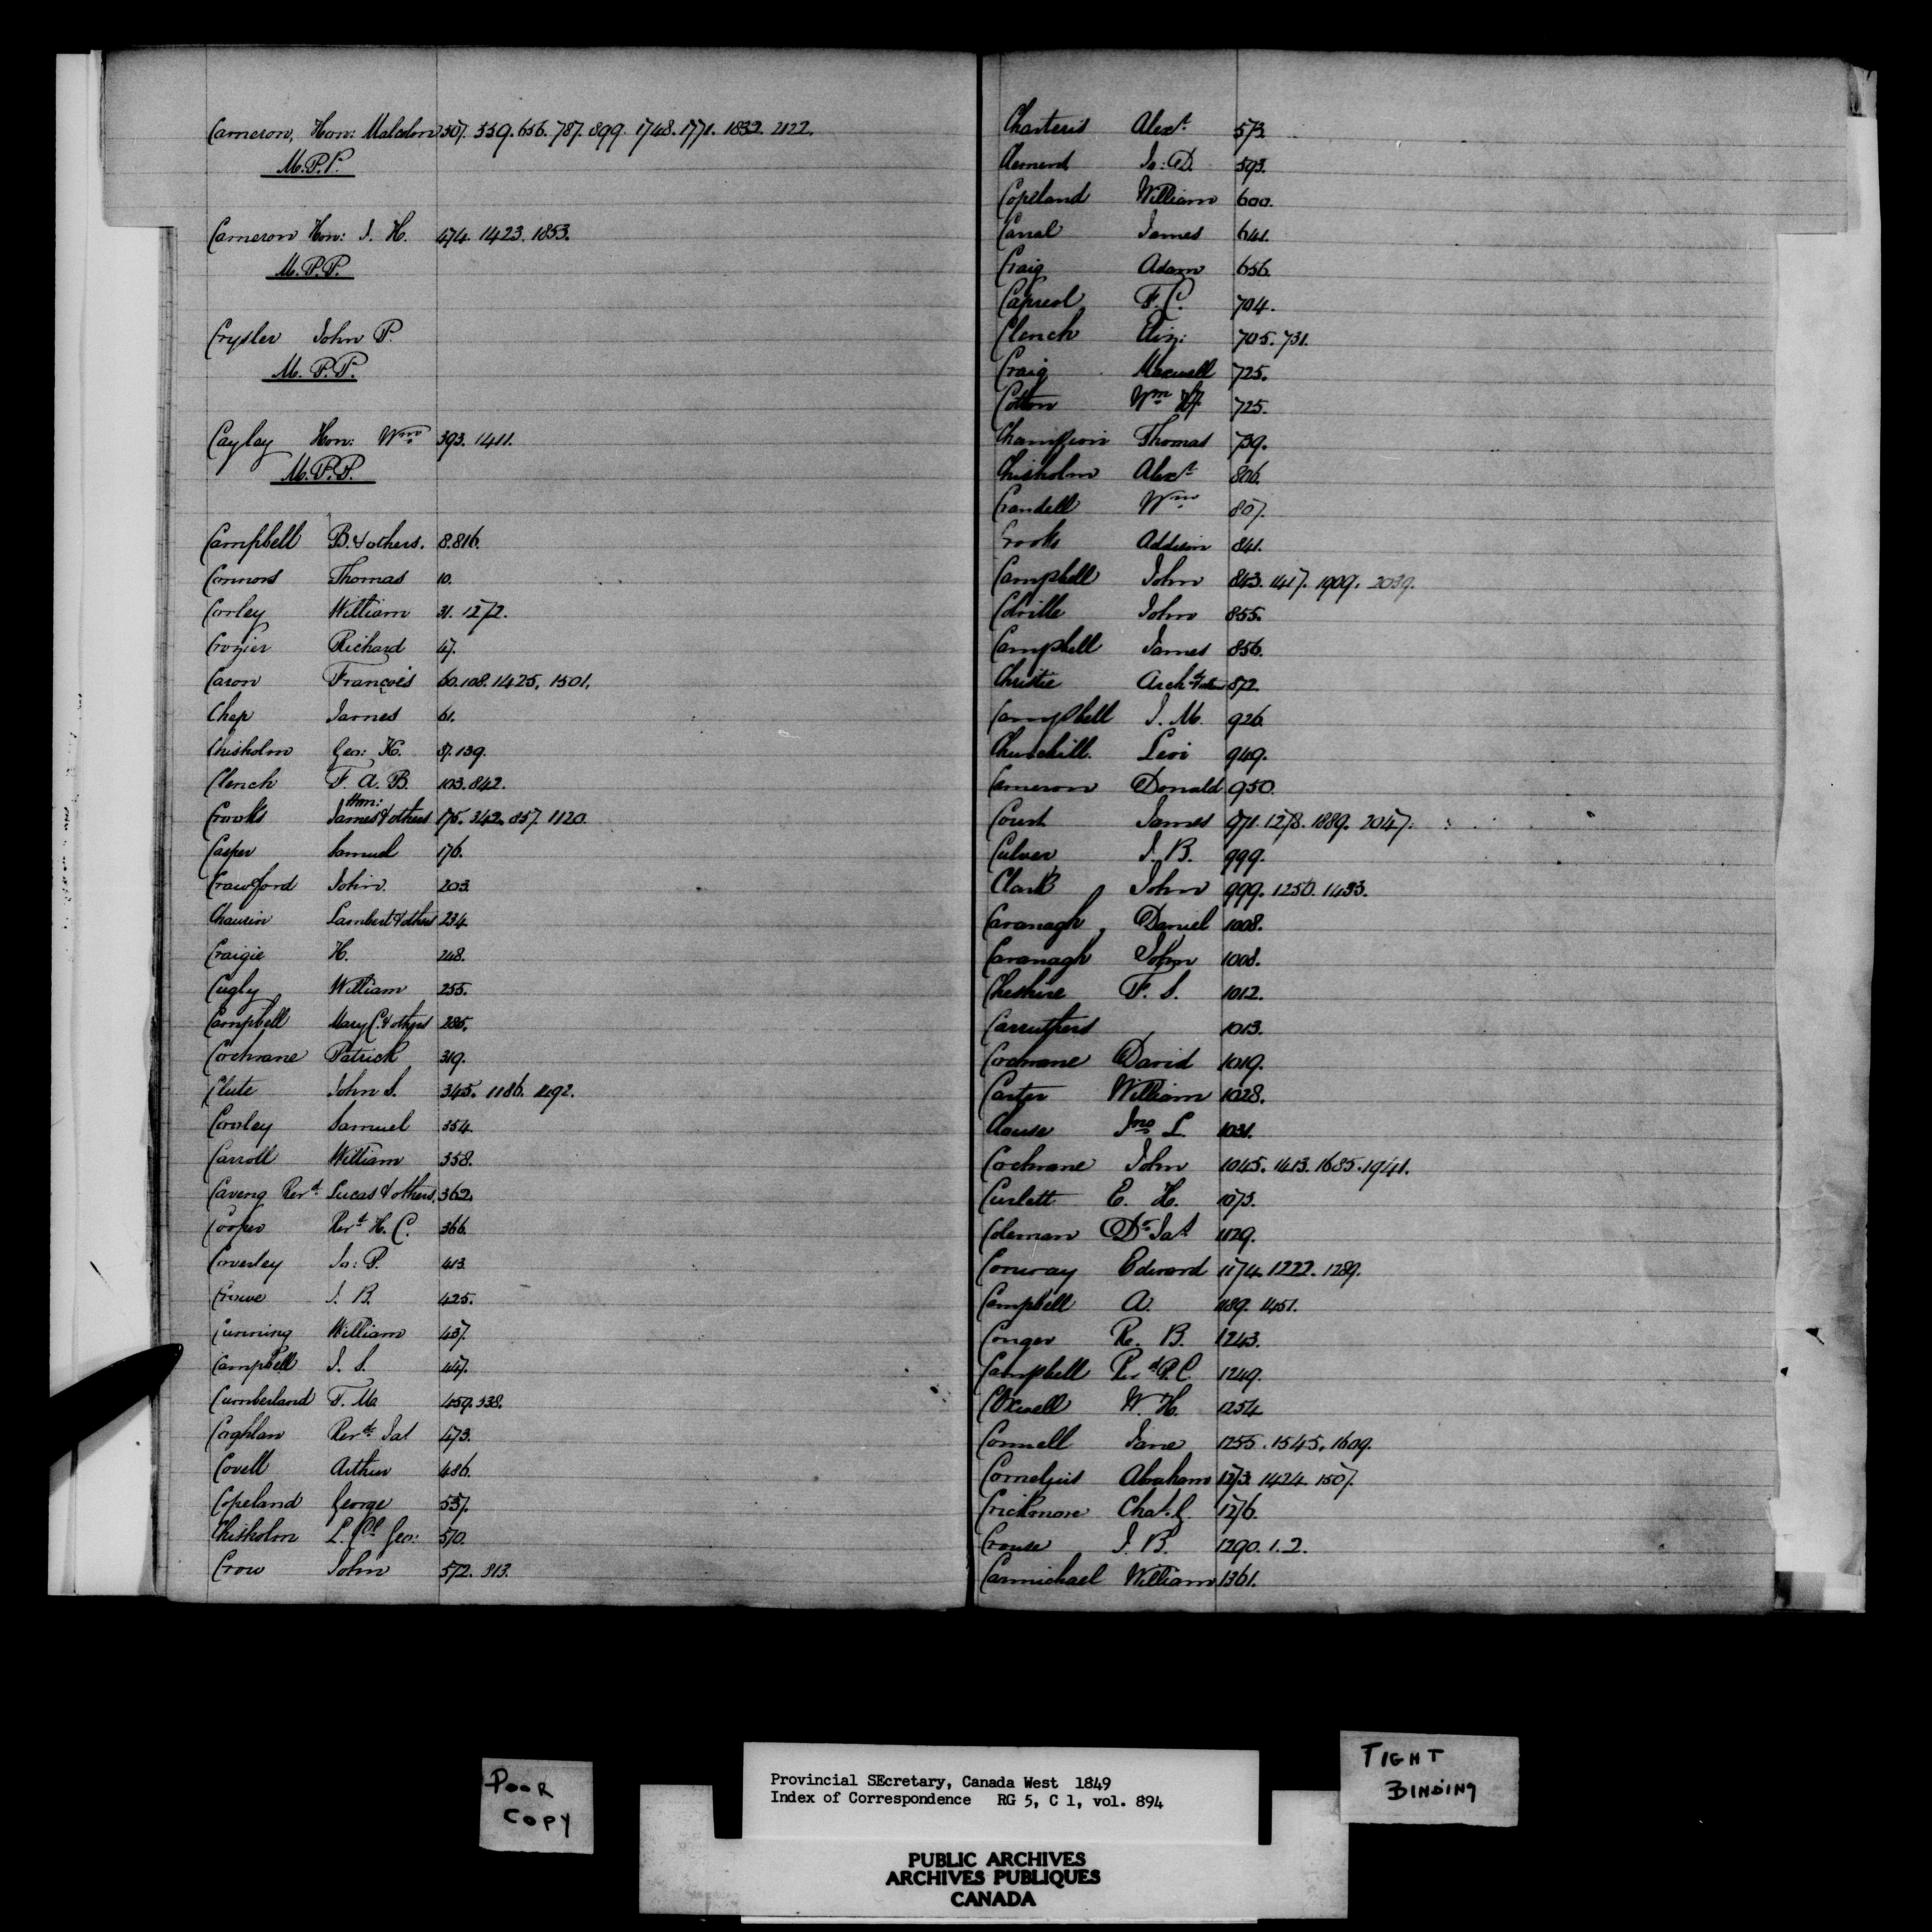 Cameron, Hon: Malcolm 307. 359. 656. 787. 899. 1748. 1771. 1832. 2122.
M.P.P.
Cameron Hon: J. H. 474. 1423. 1853.
M.P.P.
Crysler John P.
M.P.P.
Cayley Hon: Wm 393. 1411.
M.P.P.
Campbell B. & others. 8. 816.
Connors Thomas 10.
Corley William 31. 1272.
Crozier Richard 47.
Caron François 60. 108. 1425. 1501.
Chep James 61.
Chisholm Geo: K. 87. 139.
Clench F. A. B. 103. 842.
Crooks Hon: James & others 175. 342. 857. 1120.
Casper Samuel 176.
Crawford John 203.
Chauvin Lambert & others 234
Craigie H. 248.
Cugly William 255.
Campbell Mary C. & others 285.
Cochrane Patrick 319.
Clute John S. 345. 1186. 1192.
Cowley Samuel 354
Carroll William 358.
Caveng Revd. Lucas & others. 362.
Cooper Revd. H. C. 366.
Coverley Ja: P. 413.
Crowe J. B. 425.
Cumming William 437.
Campbell J. S. 447.
Cumberland F. M. 459. 538.
Coghlan Revd. Jas 473.
Covell Arthur 486.
Copeland George 537.
Chisholm L. Col Geo: 570.
Crow John 572. 813.
Charteris Alexr. 573.
Clement Jo: D. 593.
Copeland William 600.
Canal James 641.
Craig Adam 656.
Capreol F. C. 704.
Clench Eliz: 705. 731.
Craig Maxwell 725.
Cotton Wm 725.
Champion Thomas 739.
Chisholm Alexr. 806.
Crandell Wm 807.
Crooks Addison 841.
Campbell John 843. 1417. 1909. 2039.
Colville John 855.
Campbell James 856.
Christie Archd 872.
Campbell J. M. 926.
Churchill. Levi 949.
Cameron Donald 950.
Court James 971. 1278. 1889. 2047.
Culver J. B. 999.
Clark John 999. 1250. 1433.
Cavanagh, Daniel 1008.
Cavanagh John 1008.
Cheshire F. S. 1012.
Carruthers 1013.
Cochrane David 1019.
Carter William 1028.
Clouse Jno L. 1031.
Cochrane John 1045. 1413. 1685. 1941.
Curlett E. H. 1073.
Coleman Dr Jas 1129.
Conway Edward 1174. 1222. 1289.
Campbell A. 1189. 1451.
Conger R. B. 1243.
Campbell Revd P. C. 1249.
Coxwell W. H. 1254
Connell Jane 1255. 1545. 1609.
Cornelius Abraham 1273. 1424. 1507.
Crickmore Chas. G. 1276.
Crouse J. B. 1290. 1. 2.
Carmichael William 1361.
POOR COPY
Provincial SEcretary, Canada West 1849
Index of Correspondence RG 5, C 1, vol. 894
TIGHT BINDING
PUBLIC ARCHIVES
ARCHIVES PUBLIQUES
CANADA